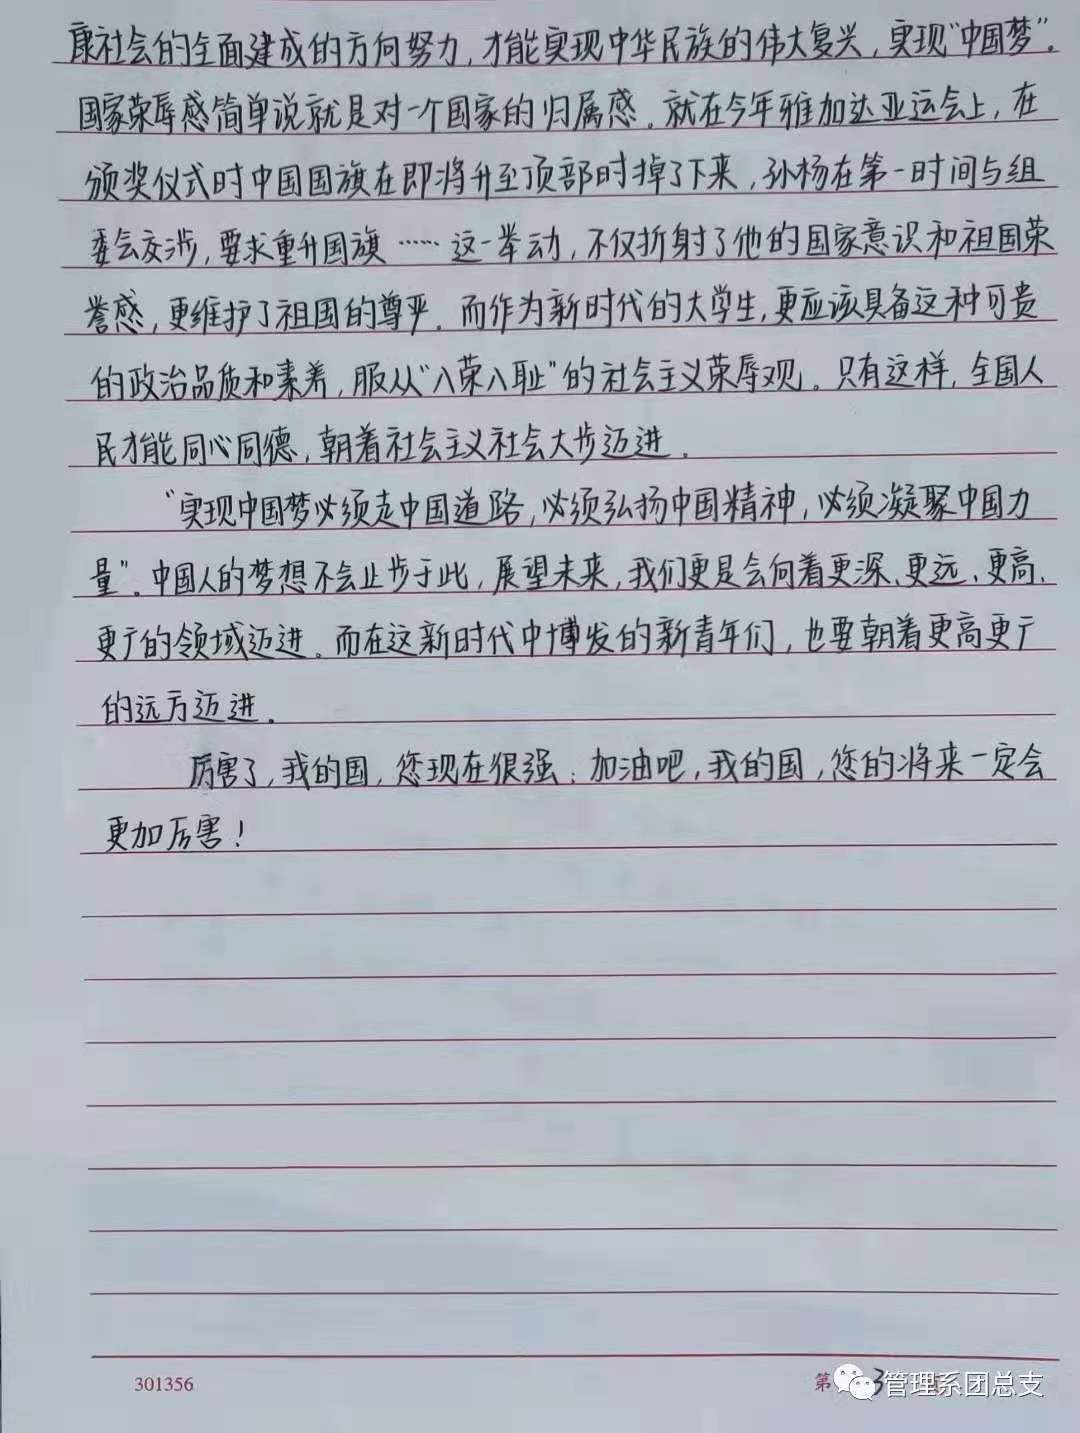 康社会的全面建成的方向努力，才能实现中华民族的伟大复兴，实现“中国梦”。
国家荣辱感简单说就是对一个国家的归属感。就在今年雅加达亚运会上，在
颁奖仪式时中国国旗在即将升至顶部时掉了下来，孙杨在第一时间与组
委会交涉，要求重升国旗……这一举动，不仅折射了他的国家意识和祖国荣
誉感，更维护了祖国的尊严。而作为新时代的大学生，更应该具备这种可贵
的政治品质和素养，服从“八荣八耻”的社会主义荣辱观。只有这样，全国人
民才能同心同德，朝着社会主义社会大步迈进。
“实现中国梦必须走中国道路，必须弘扬中国精神，必须凝聚中国力
量”。中国人的梦想不会止步于此，展望未来，我们更是会向着更深、更远、更高、
更广的领域迈进。而在这新时代中博发的新青年们，也要朝着更高更广
的远方迈进。
厉害了，我的国，您现在很强；加油吧，我的国，您的将来一定会
更加厉害！
301356
第 3
管理系团总支